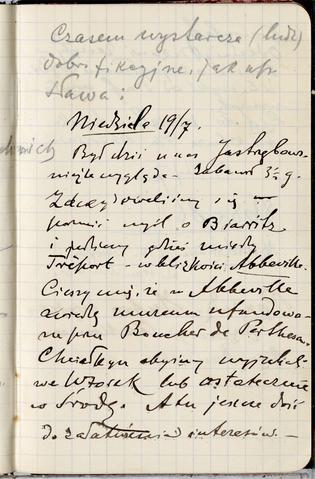 Czasem wystarcza (ludz)
dobra fikcyjne, jak np.
sława:
Niedziela 19/7.
Był dziś u nas Jastrzębow-
wygląda. Zabawił 3½ g.
Zdecydowaliśmy się —
porzucić myśl o Biarritz
i jedziemy gdzieś między
Tréport - w bliskości Abbeville.
Cieszy mnie, że w Abbeville
zwiedzę muzeum ufundowa-
ne przez Boucher de Perthesa.
Chciałbym abyśmy wyjechali
we Wtorek lub ostatecznie
w Środę. A tu jeszcze dość
do załatwienia interesów —